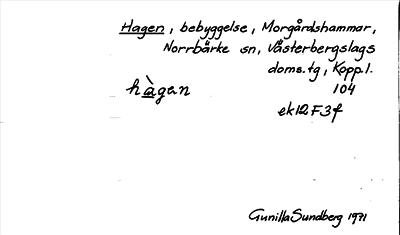 Hagen, bebyggelse, Morgårdshammar,
Norrbärke sn, Västerbergslags
doms.tg, Kopp.l.
hàgan 104
ek12F3f
Gunilla Sundberg 1971